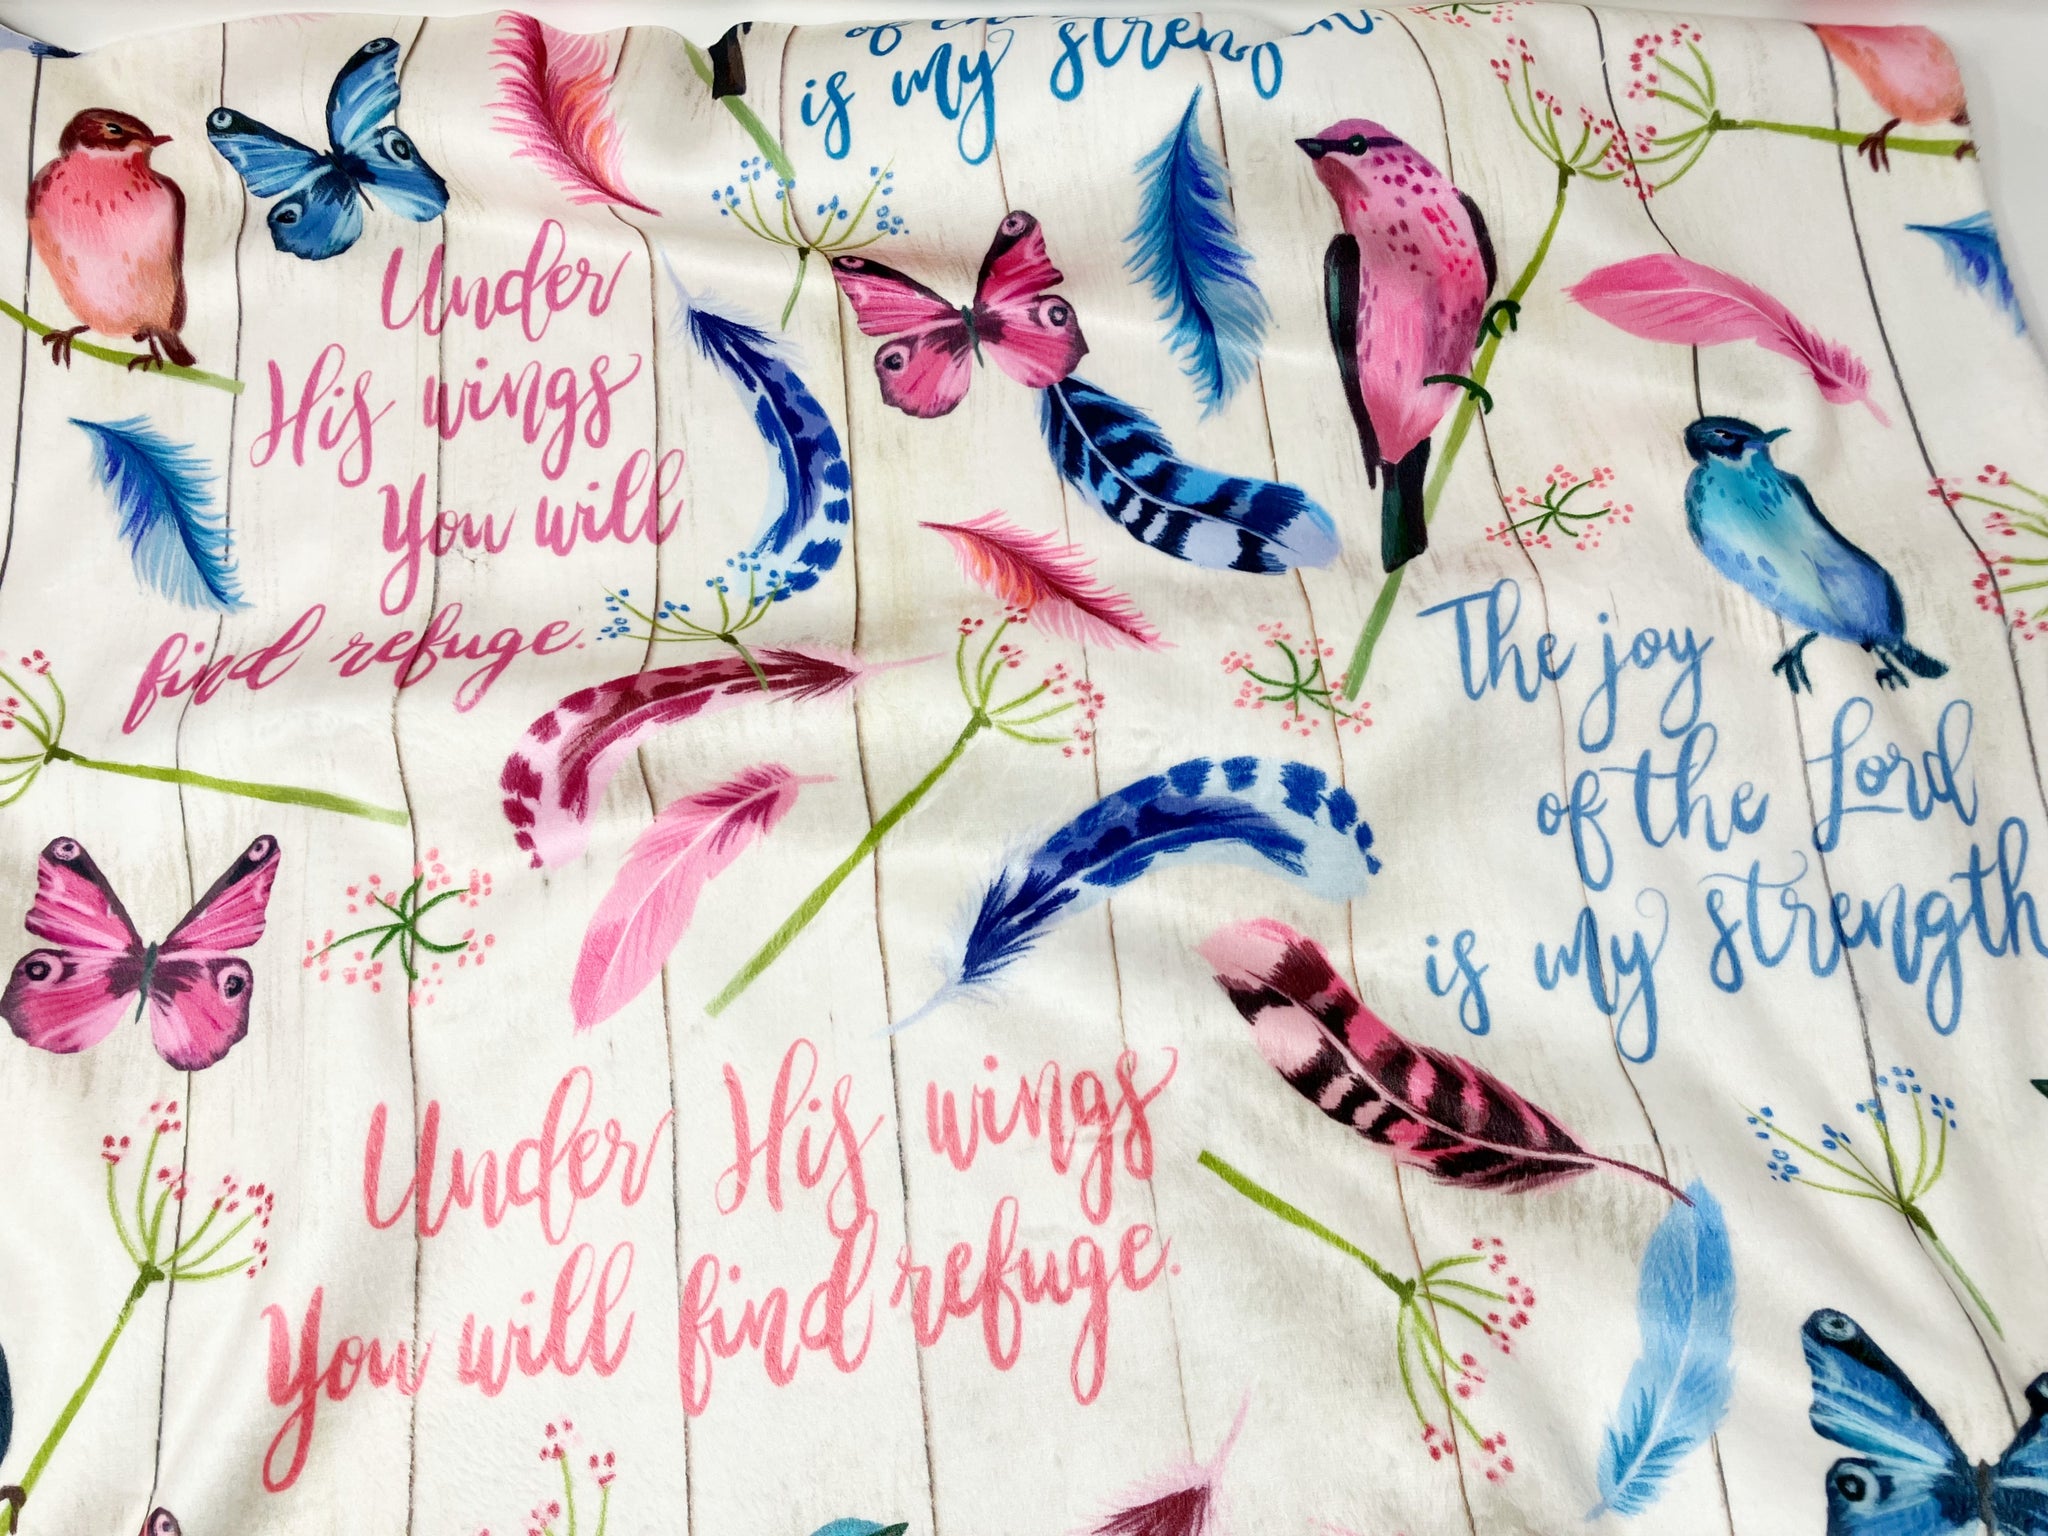 is my strength.
Under
His wings
You will
find refuge.
The joy
of the Lord
is my strength
Under His wings
You will find refuge.